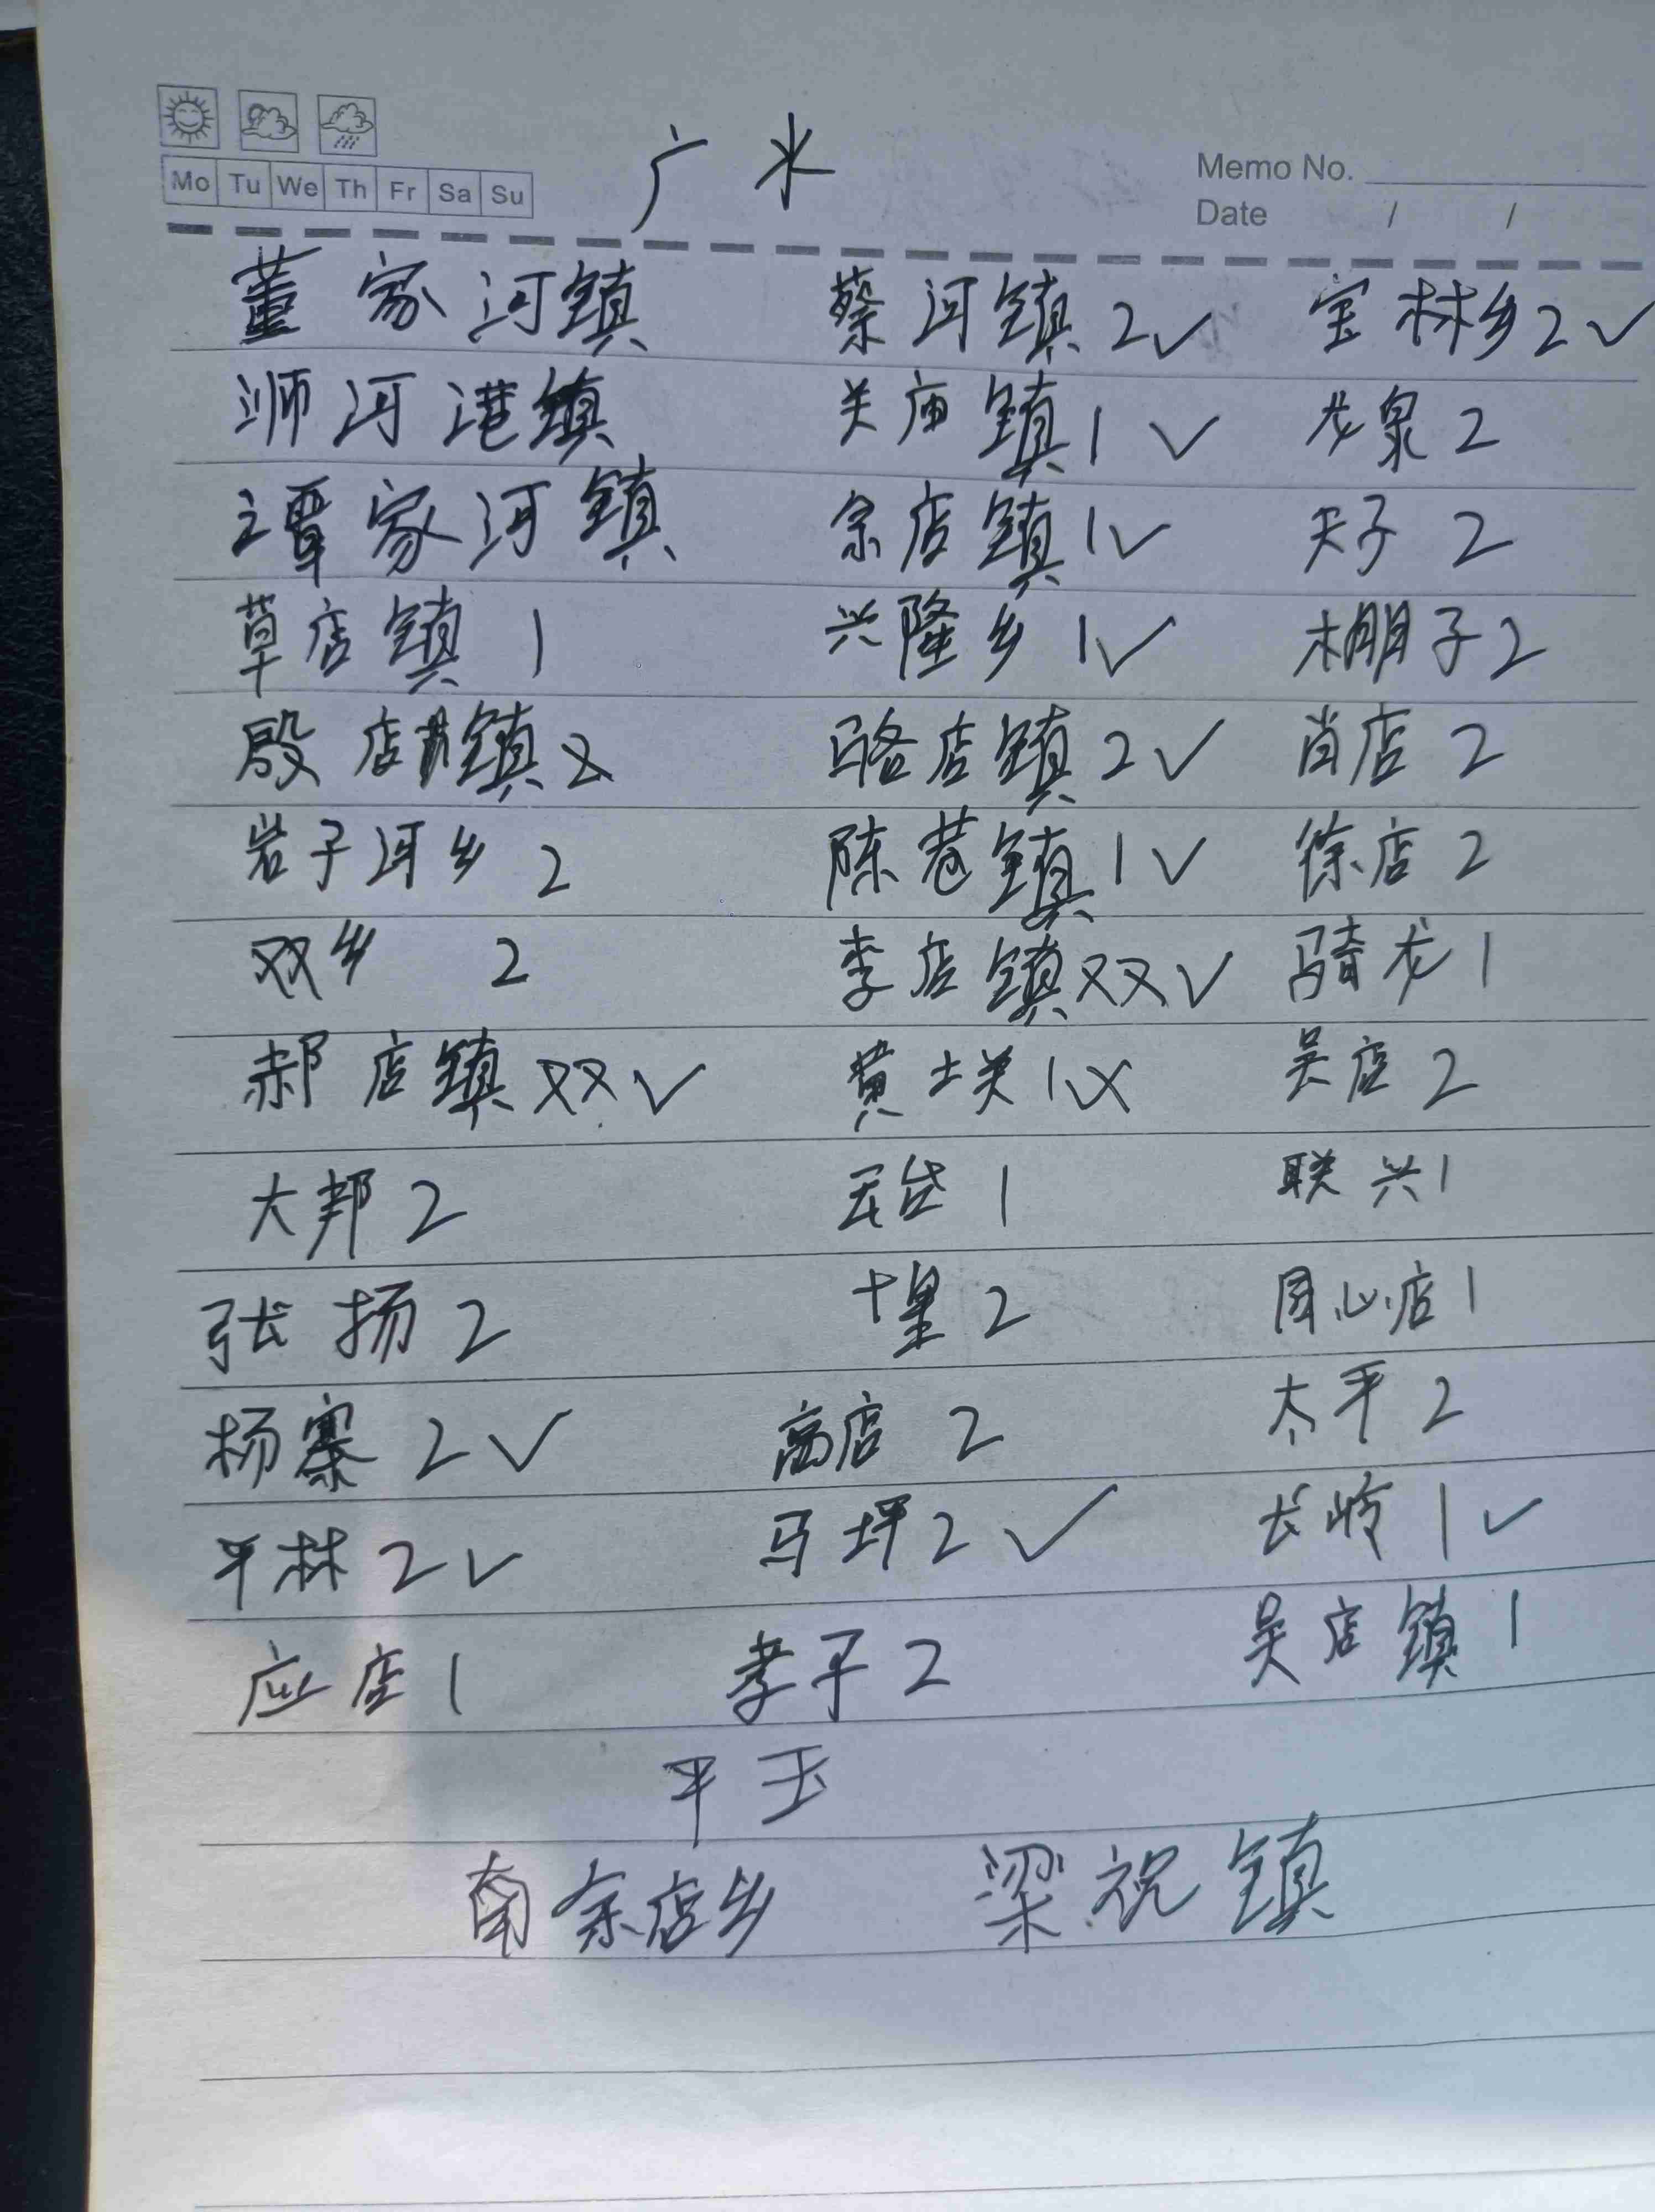 广水
Memo No.
Mo Tu We Th Fr Sa Su
Date / /
董家河镇 蔡河镇 2✓ 宝林乡 2✓
浉河港镇 关庙镇 1 ✓ 龙泉 2
谭家河镇 余店镇 1✓ 夫子 2
草店镇 1 兴隆乡 1✓ 棚子 2
殷店镇 2 骆店镇 2✓ 肖店 2
岩子河乡 2 陈巷镇 1✓ 徐店 2
双乡 2 李店镇双✓ 骑龙 1
郝店镇双✓ 黄土关 1 吴店 2
大邦 2 云台 1 联兴 1
张扬 2 十里 2 同心店 1
杨寨 2✓ 高店 2 太平 2
平林 2✓ 马坪 2✓ 长岭 1✓
应店 1 孝子 2 吴店镇 1
平玉
余店乡 梁祝镇